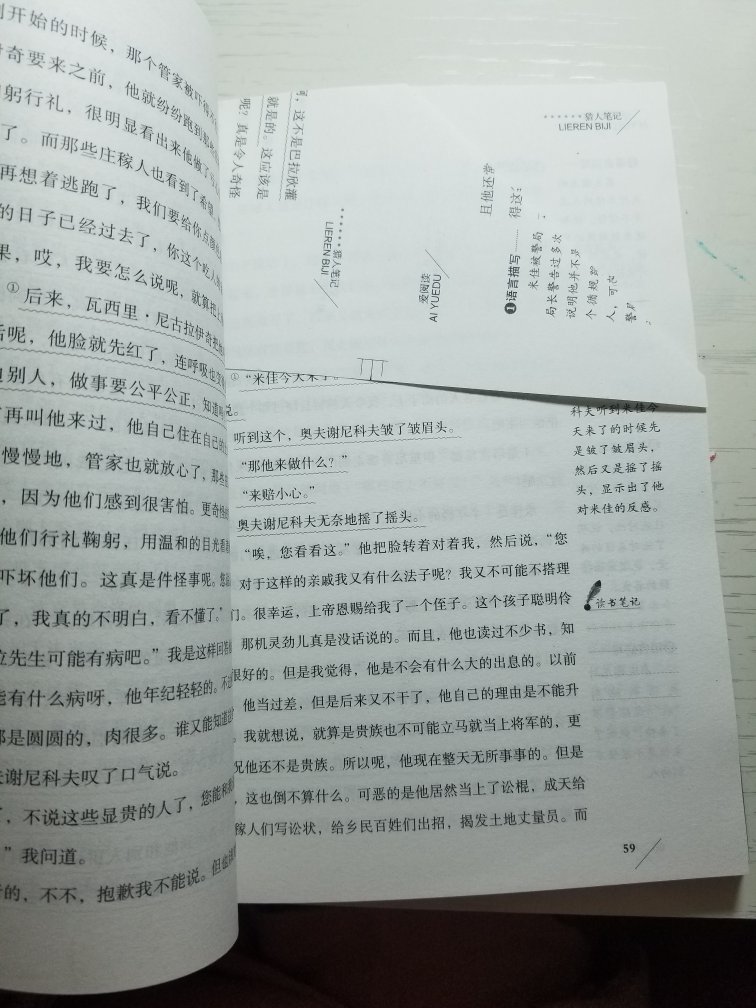 刚开始的时候，那个管家被吓得不
奇要来之前，他就纷纷跑到那些
躬行礼，很明显看出来他做了
了。而那些庄稼人也看到了希望
再想着逃跑了，我们要给你点颜
的日子已经过去了，你这个吃人
果，哎，我要怎么说呢，就算把
①后来，瓦西里·尼古拉伊奇把
后呢，他脸就先红了，连呼吸也
别人，做事要公平公正，知道吗
再叫他来过，他自己住在自己的
慢慢地，管家也就放心了，那些
，因为他们感到很害怕。更奇怪
他们行礼鞠躬，用温和的目光看着
吓坏他们。这真是件怪事呢。您
了，我真的不明白，看不懂了。”
先生可能有病吧。”我是这样回答
能有什么病呀，他年纪轻轻的。不过
都是圆圆的，肉很多。谁又能知道
夫谢尼科夫叹了口气说。
了，不说这些显贵的人了，您能和我
”我问道。
的，不不，抱歉我不能说。但
，这不是巴拉欣灌
就是的。这应该是
呢？真是令人奇怪
猎人笔记
LIEREN BIJI
爱阅读
AI YUEDU
猎人笔记
LIEREN BIJI
且他还常
得这
❶语言描写
米佳被警局
局长警告过多次
说明他并不是
个循规
人，可
警
①“米佳今天来了
听到这个，奥夫谢尼科夫皱了皱眉头。
“那他来做什么？”
“来赔小心。”
奥夫谢尼科夫无奈地摇了摇头。
“唉，您看看这。”他把脸转着对着我，然后说，“您
对于这样的亲戚我又有什么法子呢？我又不可能不搭理
们。很幸运，上帝恩赐给我了一个侄子。这个孩子聪明伶
那机灵劲儿真是没话说的。而且，他也读过不少书，知
很好的。但是我觉得，他是不会有什么大的出息的。以前
他当过差，但是后来又不干了，他自己的理由是不能升
。我就想说，就算是贵族也不可能立马就当上将军的，更
况他还不是贵族。所以呢，他现在整天无所事事的。但是
，这也倒不算什么。可恶的是他居然当上了讼棍，成天给
稼人们写讼状，给乡民百姓们出招，揭发土地丈量员。而
科夫听到米佳今
天来了的时候先
是皱了皱眉头，
然后又是摇了摇
头，显示出了他
对米佳的反感。
读书笔记
59